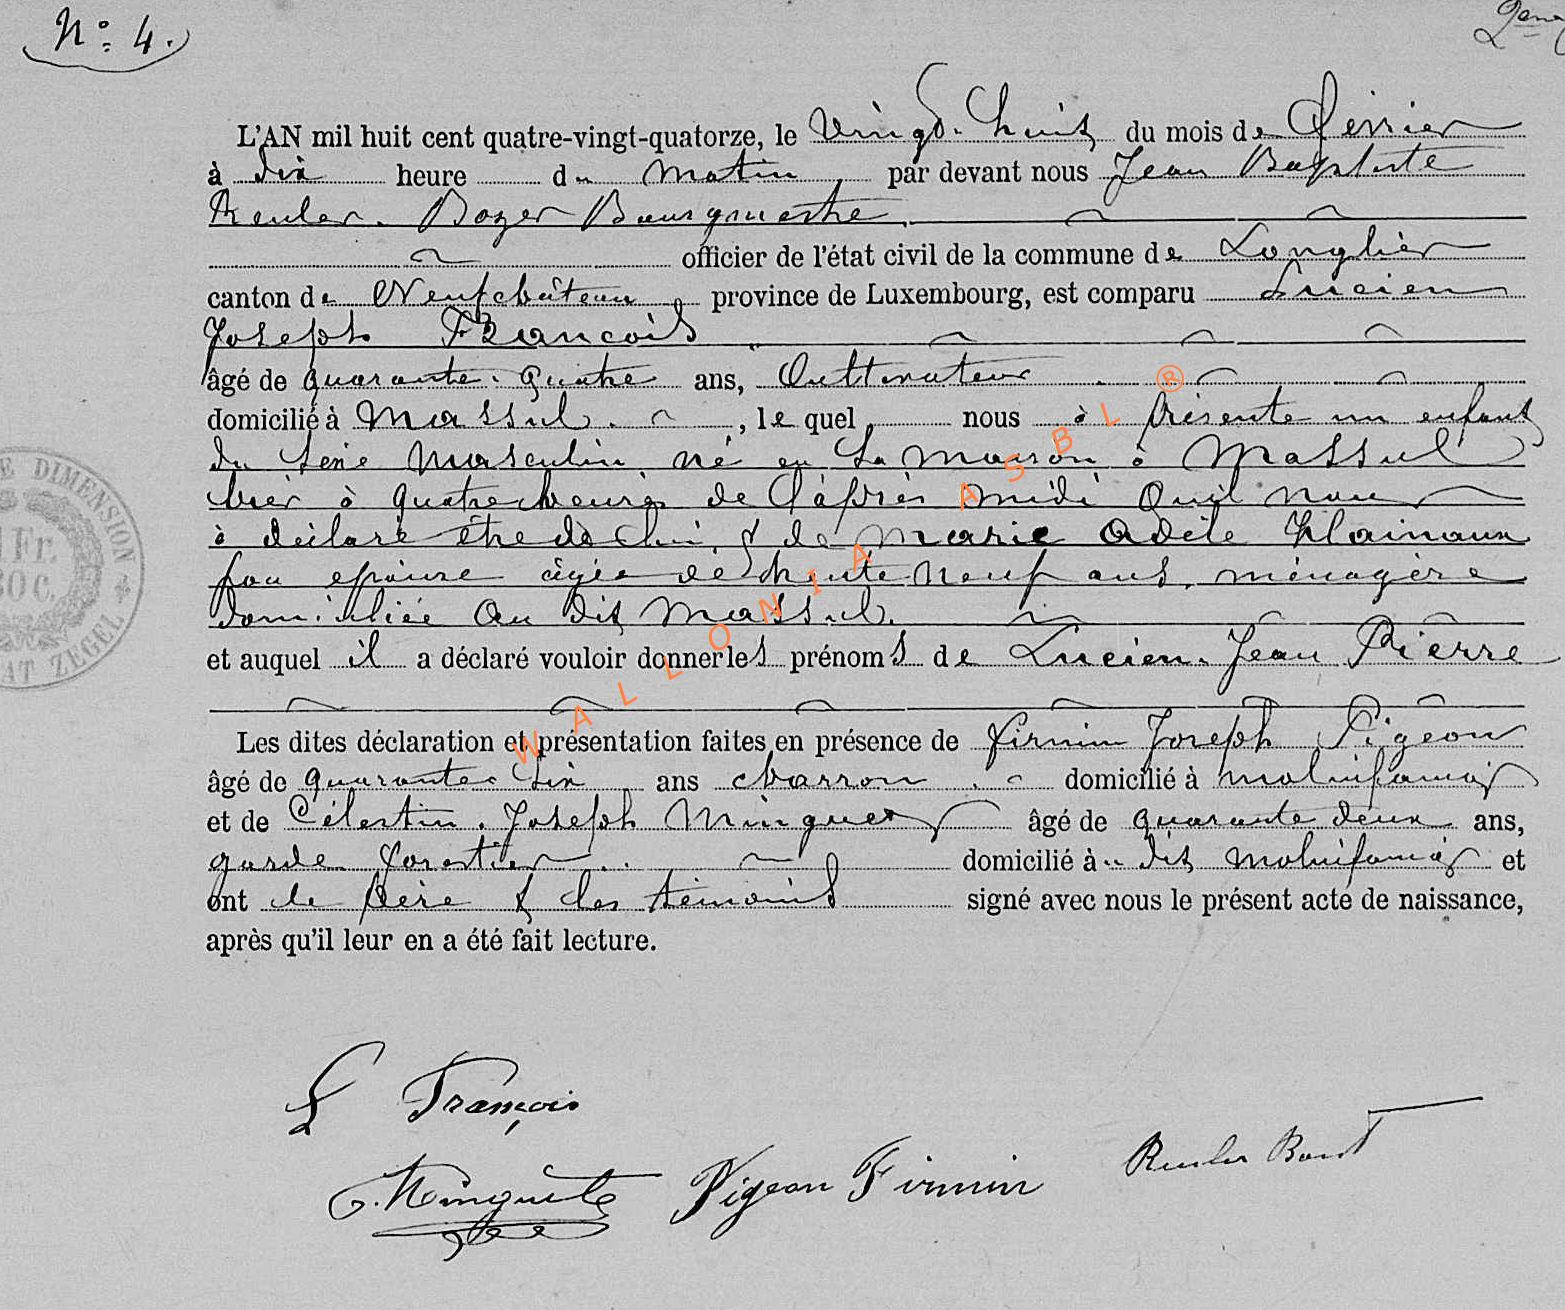 N° 4.
L'AN mil huit cent quatre-vingt-quatorze, le Vingt-huit du mois de Février
à dix heure du matin par devant nous Jean Baptiste
Reuler. Bourgmestre
officier de l'état civil de la commune de Longlier
canton de Neufchâteau province de Luxembourg, est comparu Lucien
Joseph François
âgé de quarante. quatre ans, Cultivateur
domicilié à Massul. , le quel nous à présenté un enfant
du sexe masculin, né en sa maison à Massul
hier à quatre heures de l'après midi qu'il nous
à déclaré être de lui & de Marie Adèle Hainaux
son épouse âgée de trente neuf ans, ménagère
domiciliée au dit Massul.
et auquel il a déclaré vouloir donner les prénoms de Lucien. Jean Pierre
Les dites déclaration et présentation faites en présence de Firmin Joseph Pigeon
âgé de quarante six ans charron domicilié à molinfaing
et de Célestin. Joseph Minguet âgé de quarante deux ans,
garde forestier domicilié au dit molinfaing et
ont le père & les témoins signé avec nous le présent acte de naissance,
après qu'il leur en a été fait lecture.
E DIMENSION
1 Fr.
30 C.
AT ZEGEL
WALLONIA ASBL ®
L François
C. Minguet Pigeon Firmin Reuler